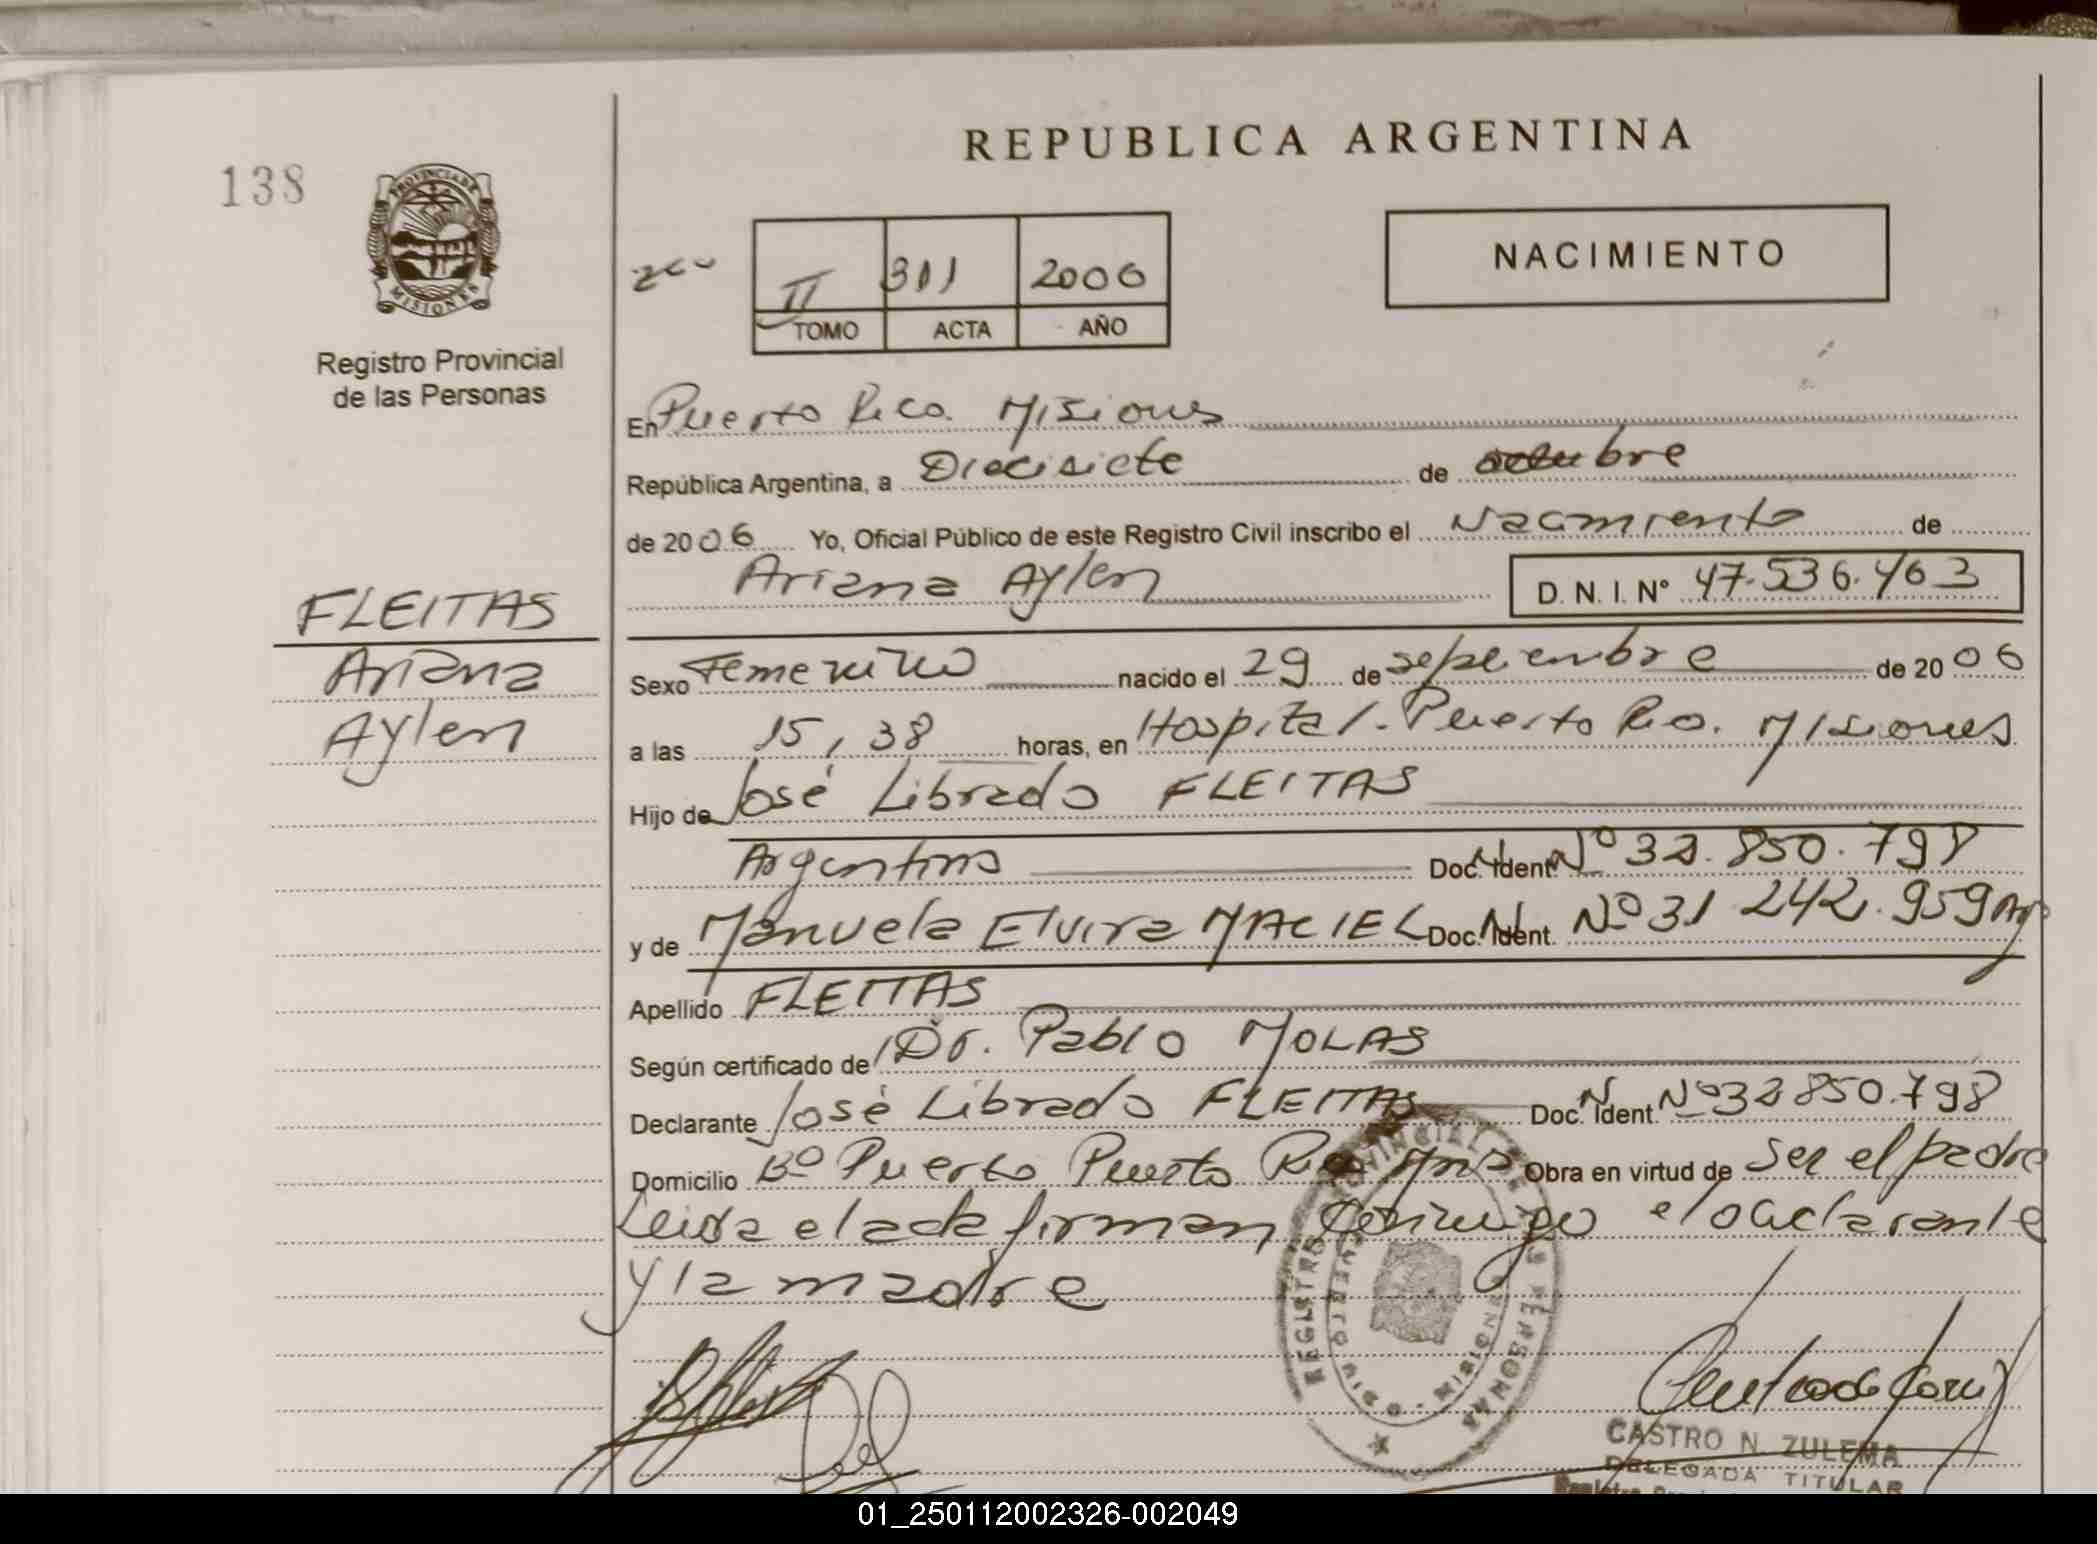 REPUBLICA ARGENTINA
138
PROVINCIA DE
MISIONES
Registro Provincial
de las Personas
II 311 2006
TOMO ACTA AÑO
NACIMIENTO
En Puerto Rico. Misiones
República Argentina, a Diecisiete de octubre
de 2006 Yo, Oficial Público de este Registro Civil inscribo el Nacimiento de
Ariana Aylen D. N. I. Nº 47.536.463
FLEITAS
Ariana
Aylen
Sexo Femenino nacido el 29 de septiembre de 2006
a las 15,38 horas, en Hospital. Puerto Rico. Misiones
Hijo de José Librado FLEITAS
Argentino Doc. Ident. Nº 32.850.798
y de Manuela Elvira MACIEL Doc. Ident. Nº 31 242.959 Arg
Apellido FLEITAS
Según certificado de Dr. Pablo MOLAS
Declarante José Librado FLEITAS Doc. Ident. Nº 32 850.798
Domicilio Bº Puerto Puerto Rico Mnes Obra en virtud de ser el padre
Leida el acta firman conmigo el declarante
y la madre
REGISTRO PROVINCIAL DE LAS PERSONAS
PUERTO RICO - MISIONES
CASTRO N. ZULEMA
DELEGADA TITULAR
01_250112002326-002049